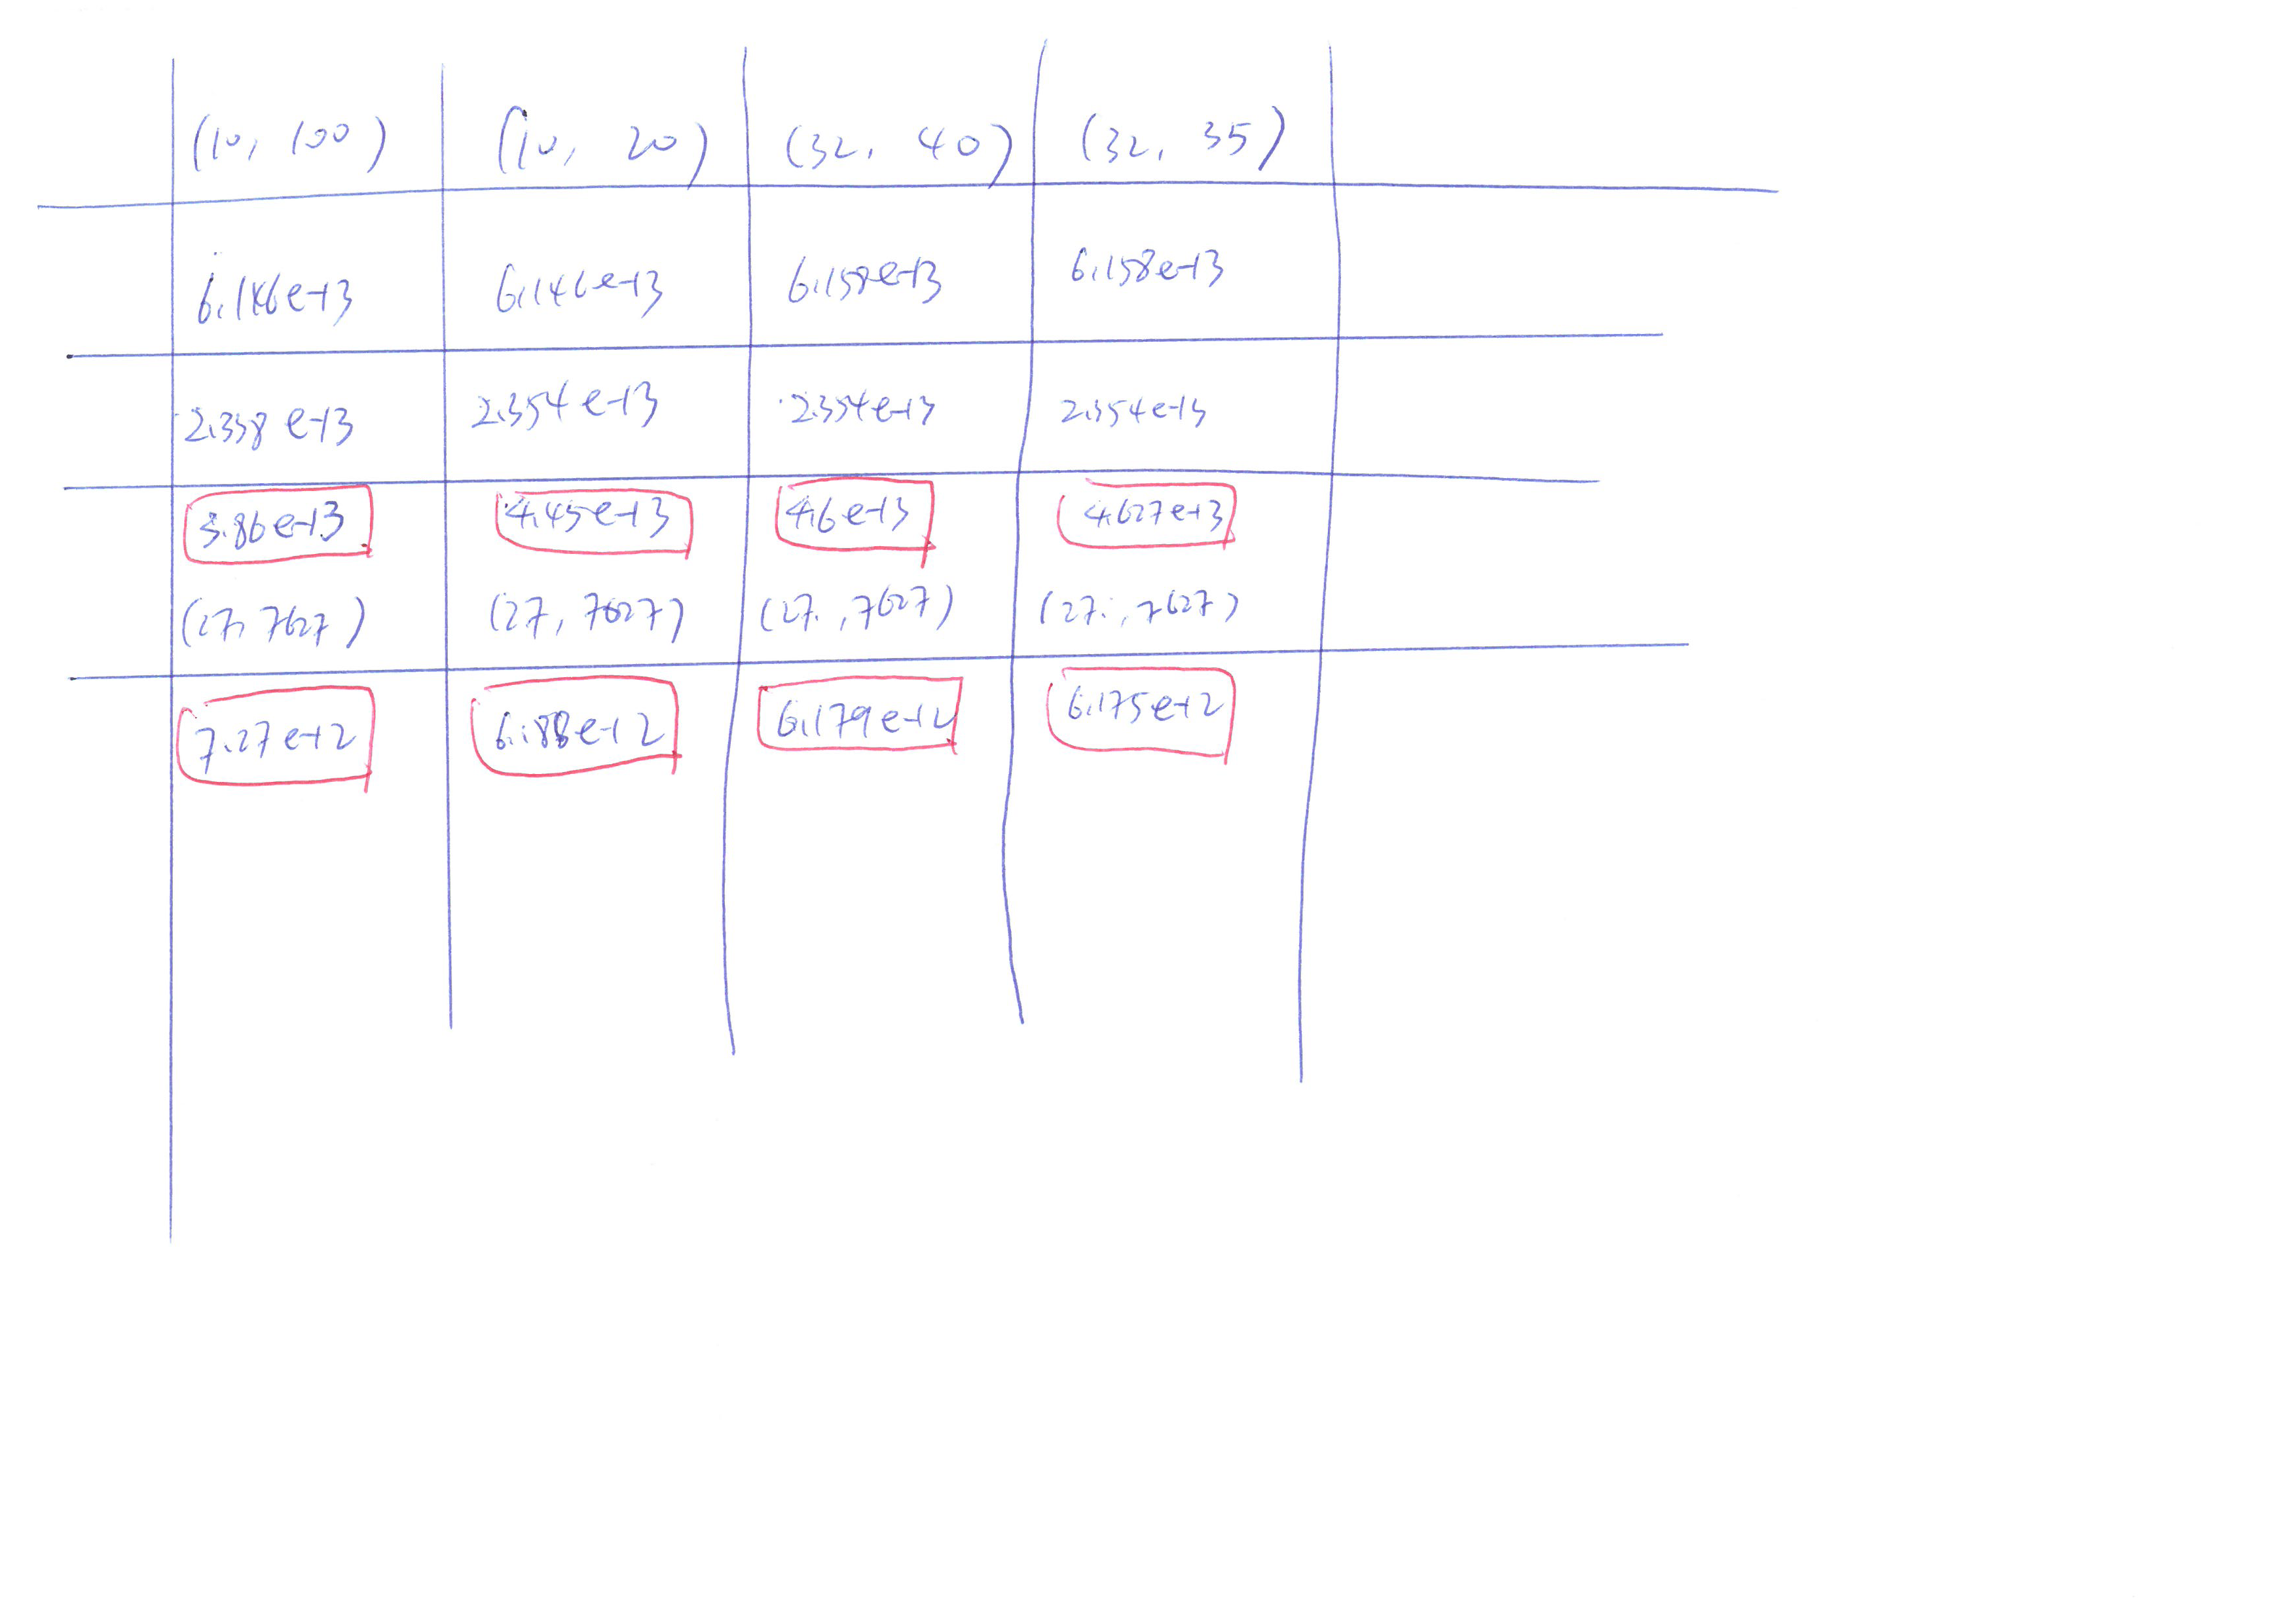 (10, 100) (10, 20) (32, 40) (32, 35)
6.146e+13 6.146e+13 6.158e+13 6.158e+13
2.358e+13 2.354e+13 2.354e+13 2.354e+13
3.86e+13 4.45e+13 4.6e+13 4.627e+13
(27, 7627) (27, 7627) (27, 7627) (27, 7627)
7.27e+12 6.188e+12 6.179e+12 6.175e+12